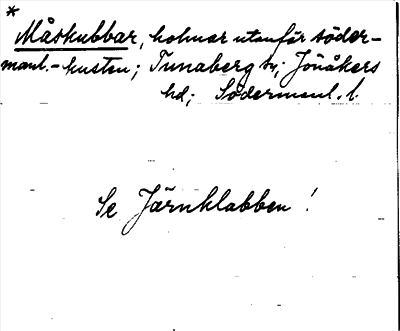 *
Måskubbar, holmar utanför söder-
manl.-kusten; Tunaberg sn; Jönåkers
hd; Södermanl. l.
Se Järnklabben!